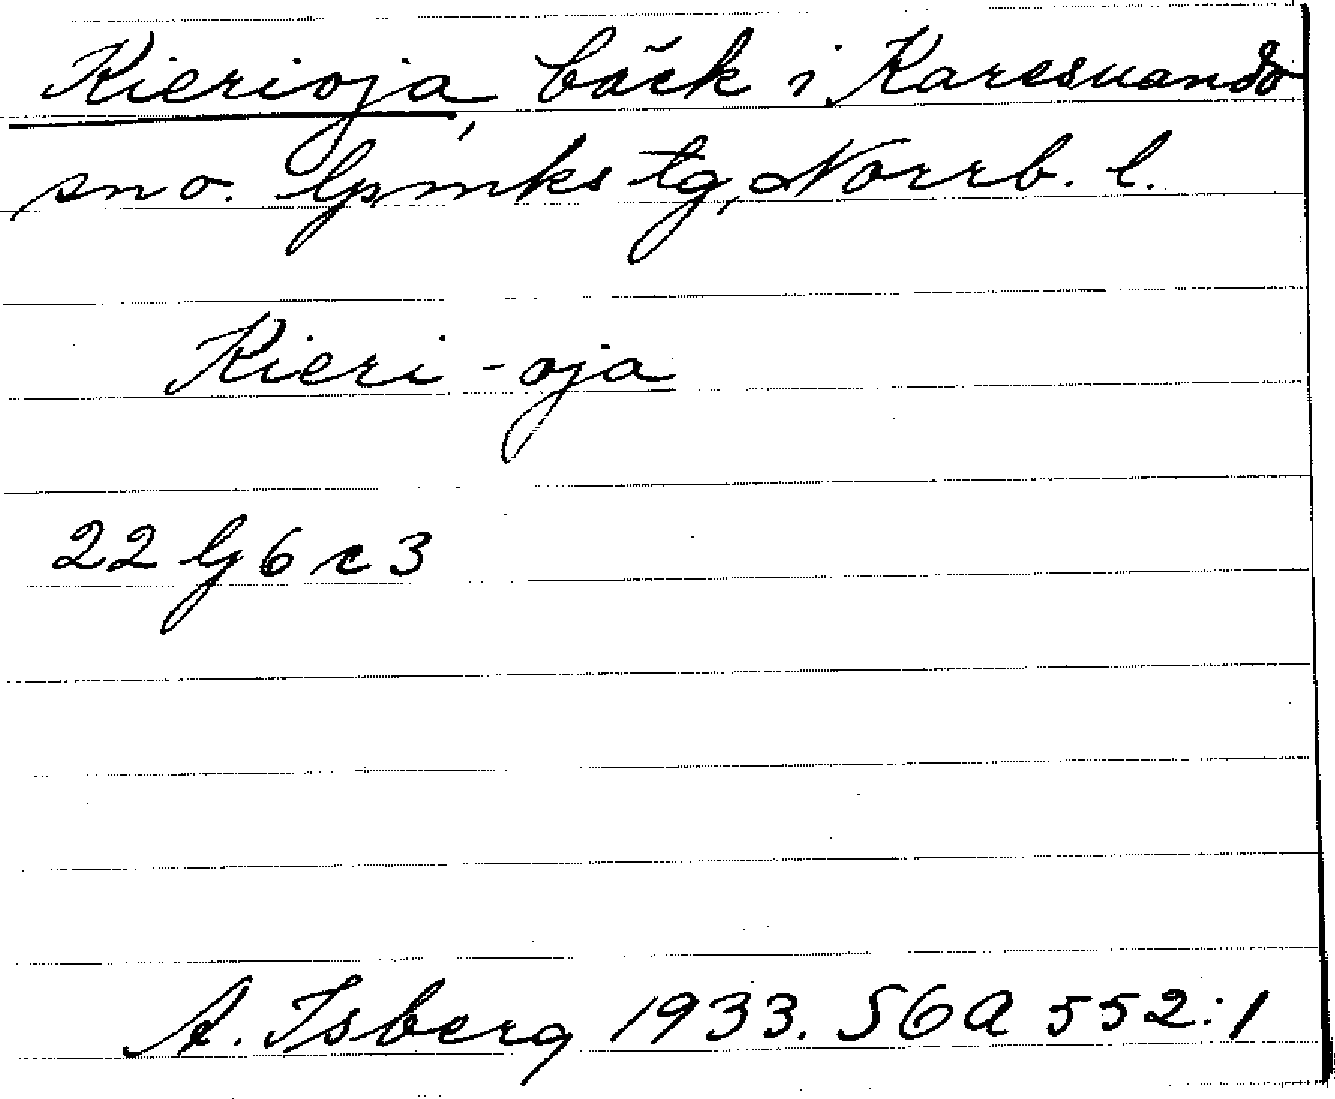 Kierioja, bäck i Karesuando
sn o. lpmks tg, Norrb. l.
Kieri-oja
22 G 6 c 3
A. Isberg 1933. SGA 552:1